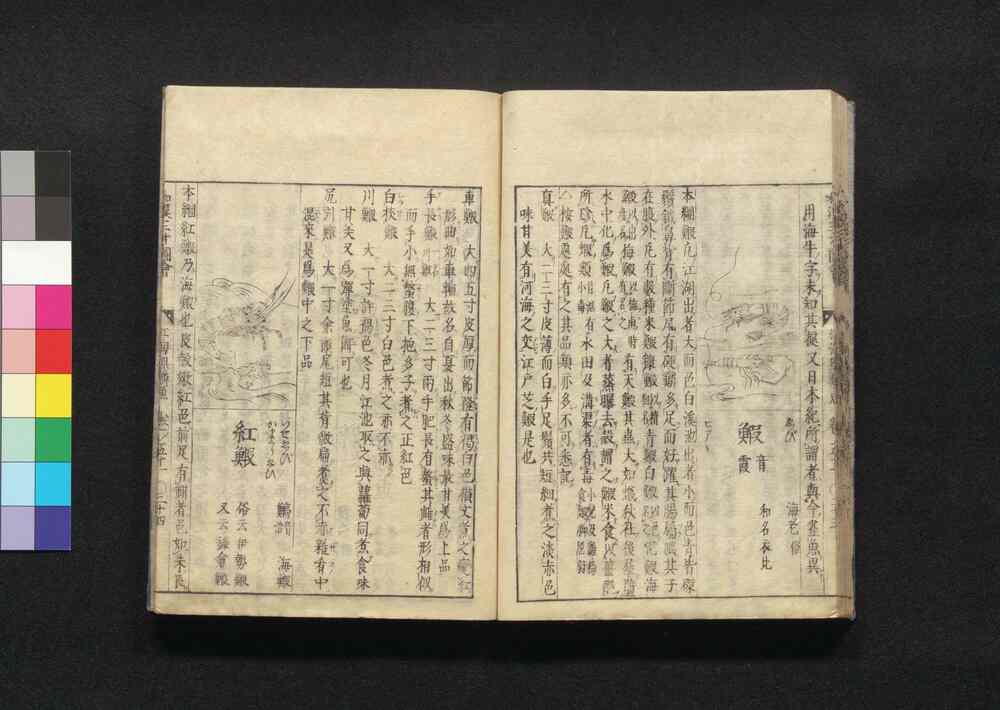 用海牛字未知其據又日本紀所謂者與今畫魚異
鰕
ゑび
音霞
海老俗
和名衣比
本綱鰕凡江湖出者大而色白溪池出者小而色青皆磔
鬚鉞鼻背有斷節尾有硬鱗多足而好躍其腸屬腦其子
在腹外凡有數種米鰕糠鰕以精粗青鰕白鰕以色泥鰕海
鰕以出梅鰕以梅雨時有天鰕其蟲大如蟻秋社後墮
水中化爲鰕凡鰕之大者蒸曝去殼謂之鰕米食以薑醋
所珍凡鰕類有水田及溝渠者有毒
△按鰕處處有之其品類亦多不可悉記
眞鰕 大二三寸皮薄而白手足鬚共短細煮之淡赤色
味甘美有河海之交江戸芝鰕是也
車鰕 大四五寸皮厚而節隆有褐白色橫文煮之變紅
形曲如車輪故名自夏出秋冬盛味最甘美爲上品
手長鰕 川鰕 大二三寸兩手肥長有螯其雌者形相似
而手小無螯腹下抱多子煮之正紅色
白枝鰕 大一二寸白色煮之亦不赤
川鰕 大一寸許褐色冬月江池取之與蘿蔔同煮食味
甘美又爲
尻引鰕 大一寸余而尾短其背微扁煮之不赤雜有中
混來是爲鰕中之下品
紅鰕
いせゑび
かまくらゑび
海鰕
俗云伊勢鰕
又云鎌倉鰕
本綱紅鰕乃海鰕也皮殼嫩紅色前足有鉗者色如朱
和漢三才圖會